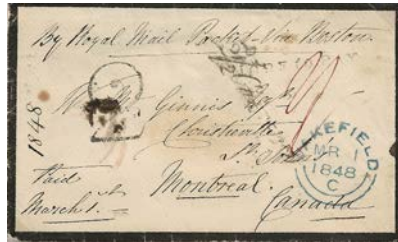 By Royal Mail Packet via Boston
1848
Wm Mc Ginnis Esqr
Christieville
St Johns
Montreal.
Canada
Paid
March 1st
WAKEFIELD
MR 1
1848
C